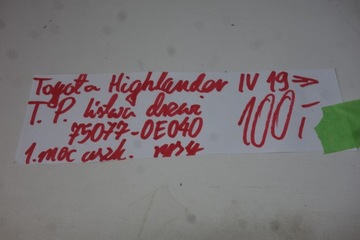 Toyota Highlander IV 19=>
T. P. listwa drzwi 100,-
75077-0E040
1. moc uszk. rysy